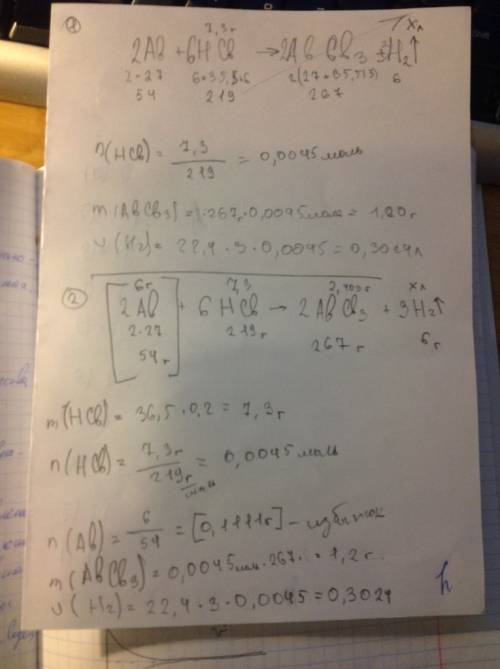 1
7,3 г xл
2Al + 6HCl → 2AlCl3 + 3H2↑
2·27 6·35,5+6 2(27+35,5·3) 6
54 219 267
n(HCl) = 7,3 / 219 = 0,0045 моль
m(AlCl3) = 267г·0,0045моль = 1,20г
v(H2) = 22,4·3·0,0045 = 0,3024л
2
6г 7,3 2,403г xл
2Al + 6HCl → 2AlCl3 + 3H2↑
2·27 219г 267г 6г
54г
m(HCl) = 36,5·0,2 = 7,3г
n(HCl) = 7,3г / 219г/моль = 0,0045 моль
n(Al) = 6 / 54 = [0,1111г] - избыток
m(AlCl3) = 0,0045моль·267 = 1,2г.
v(H2) = 22,4·3·0,0045 = 0,3024
h